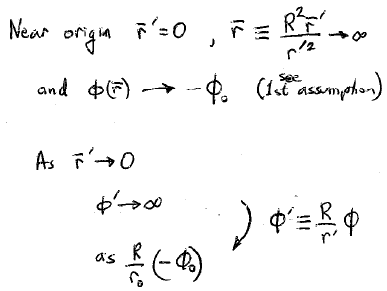 Near origin r̄′=0 , r̄ ≡ R²r̄′/r′² → ∞
and ϕ(r̄) → −Φ₀ (see 1st assumption)
As r̄′→0
ϕ′→∞
ϕ′ ≡ R/r′ ϕ
as R/r₀ (−Φ₀)